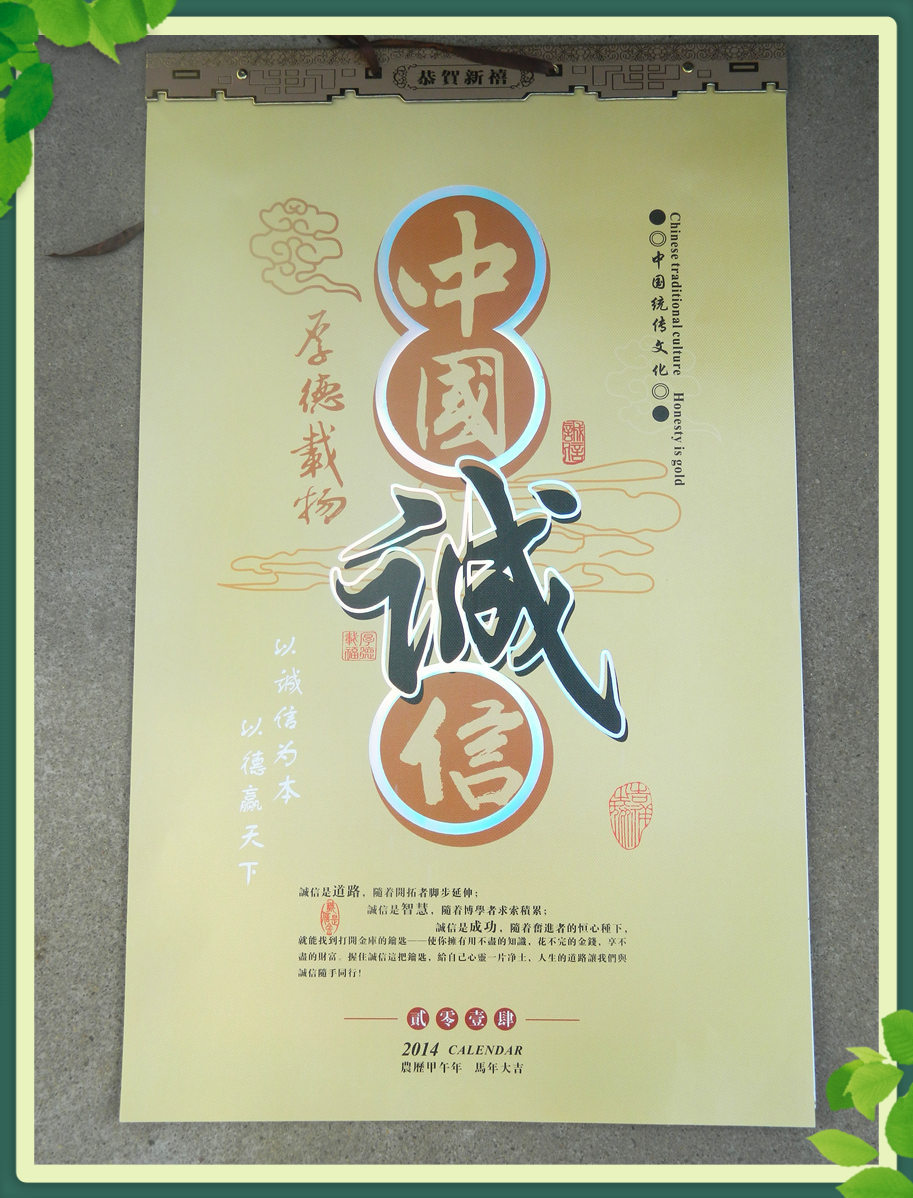 恭賀新禧
中國誠信
Chinese traditional culture Honesty is gold
中国统传文化
厚德載物
誠信
厚德載福
以誠信为本
以德赢天下
誠信是道路，隨着開拓者脚步延伸；
誠信是智慧，隨着博學者求索積累；
誠信是成功，隨着奮進者的恒心種下，
就能找到打開金庫的鑰匙——使你擁有用不盡的知識，花不完的金錢，享不
盡的財富。握住誠信這把鑰匙，給自己心靈一片净土，人生的道路讓我們與
誠信隨手同行！
貳零壹肆
2014 CALENDAR
農歷甲午年 馬年大吉